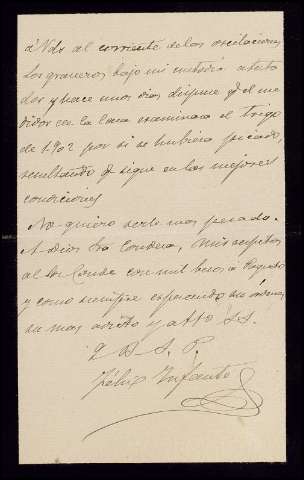 á Vds al corriente de las oscilaciones
Los graneros bajo mi custodia
dos y hace unos dias dispuse q el me
didor en la examinara el trigo
de 1902 por si se hubiera picado,
resultando q sigue en las mejores
condiciones
No quiero serle mas pesado.
A Dios Sra Condesa, mis respetos
al Sr Conde con mil besos á
y como siempre esperando sus órdenes
su mas adicto y atto S.S.
q B. S. P.
Félix Infante